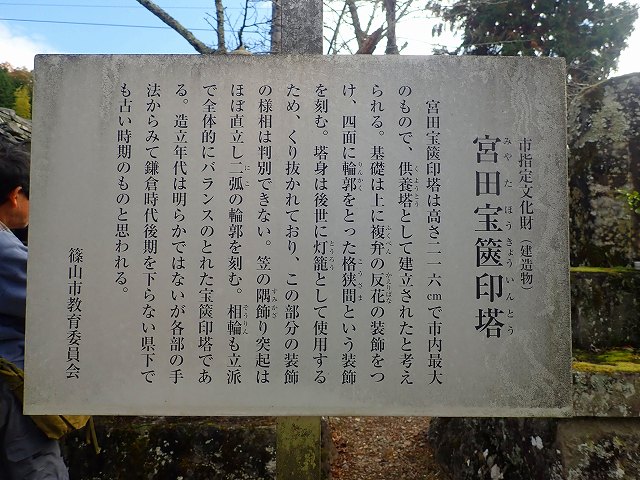 市指定文化財(建造物)
宮田宝篋印塔
みやたほうきょういんとう
宮田宝篋印塔は高さ二一六㎝で市内最大
のもので、供養塔として建立されたと考え
くようとう
られる。基礎は上に複弁の反花の装飾をつ
ふくべん かえりばな
け、四面に輪郭をとった格狭間という装飾
りんかく こうざま
を刻む。塔身は後世に灯籠として使用する
とうろう
ため、くり抜かれており、この部分の装飾
の様相は判別できない。笠の隅飾り突起は
すみかざ
ほぼ直立し二弧の輪郭を刻む。相輪も立派
にこ そうりん
で全体的にバランスのとれた宝篋印塔であ
る。造立年代は明らかではないが各部の手
法からみて鎌倉時代後期を下らない県下で
も古い時期のものと思われる。
篠山市教育委員会